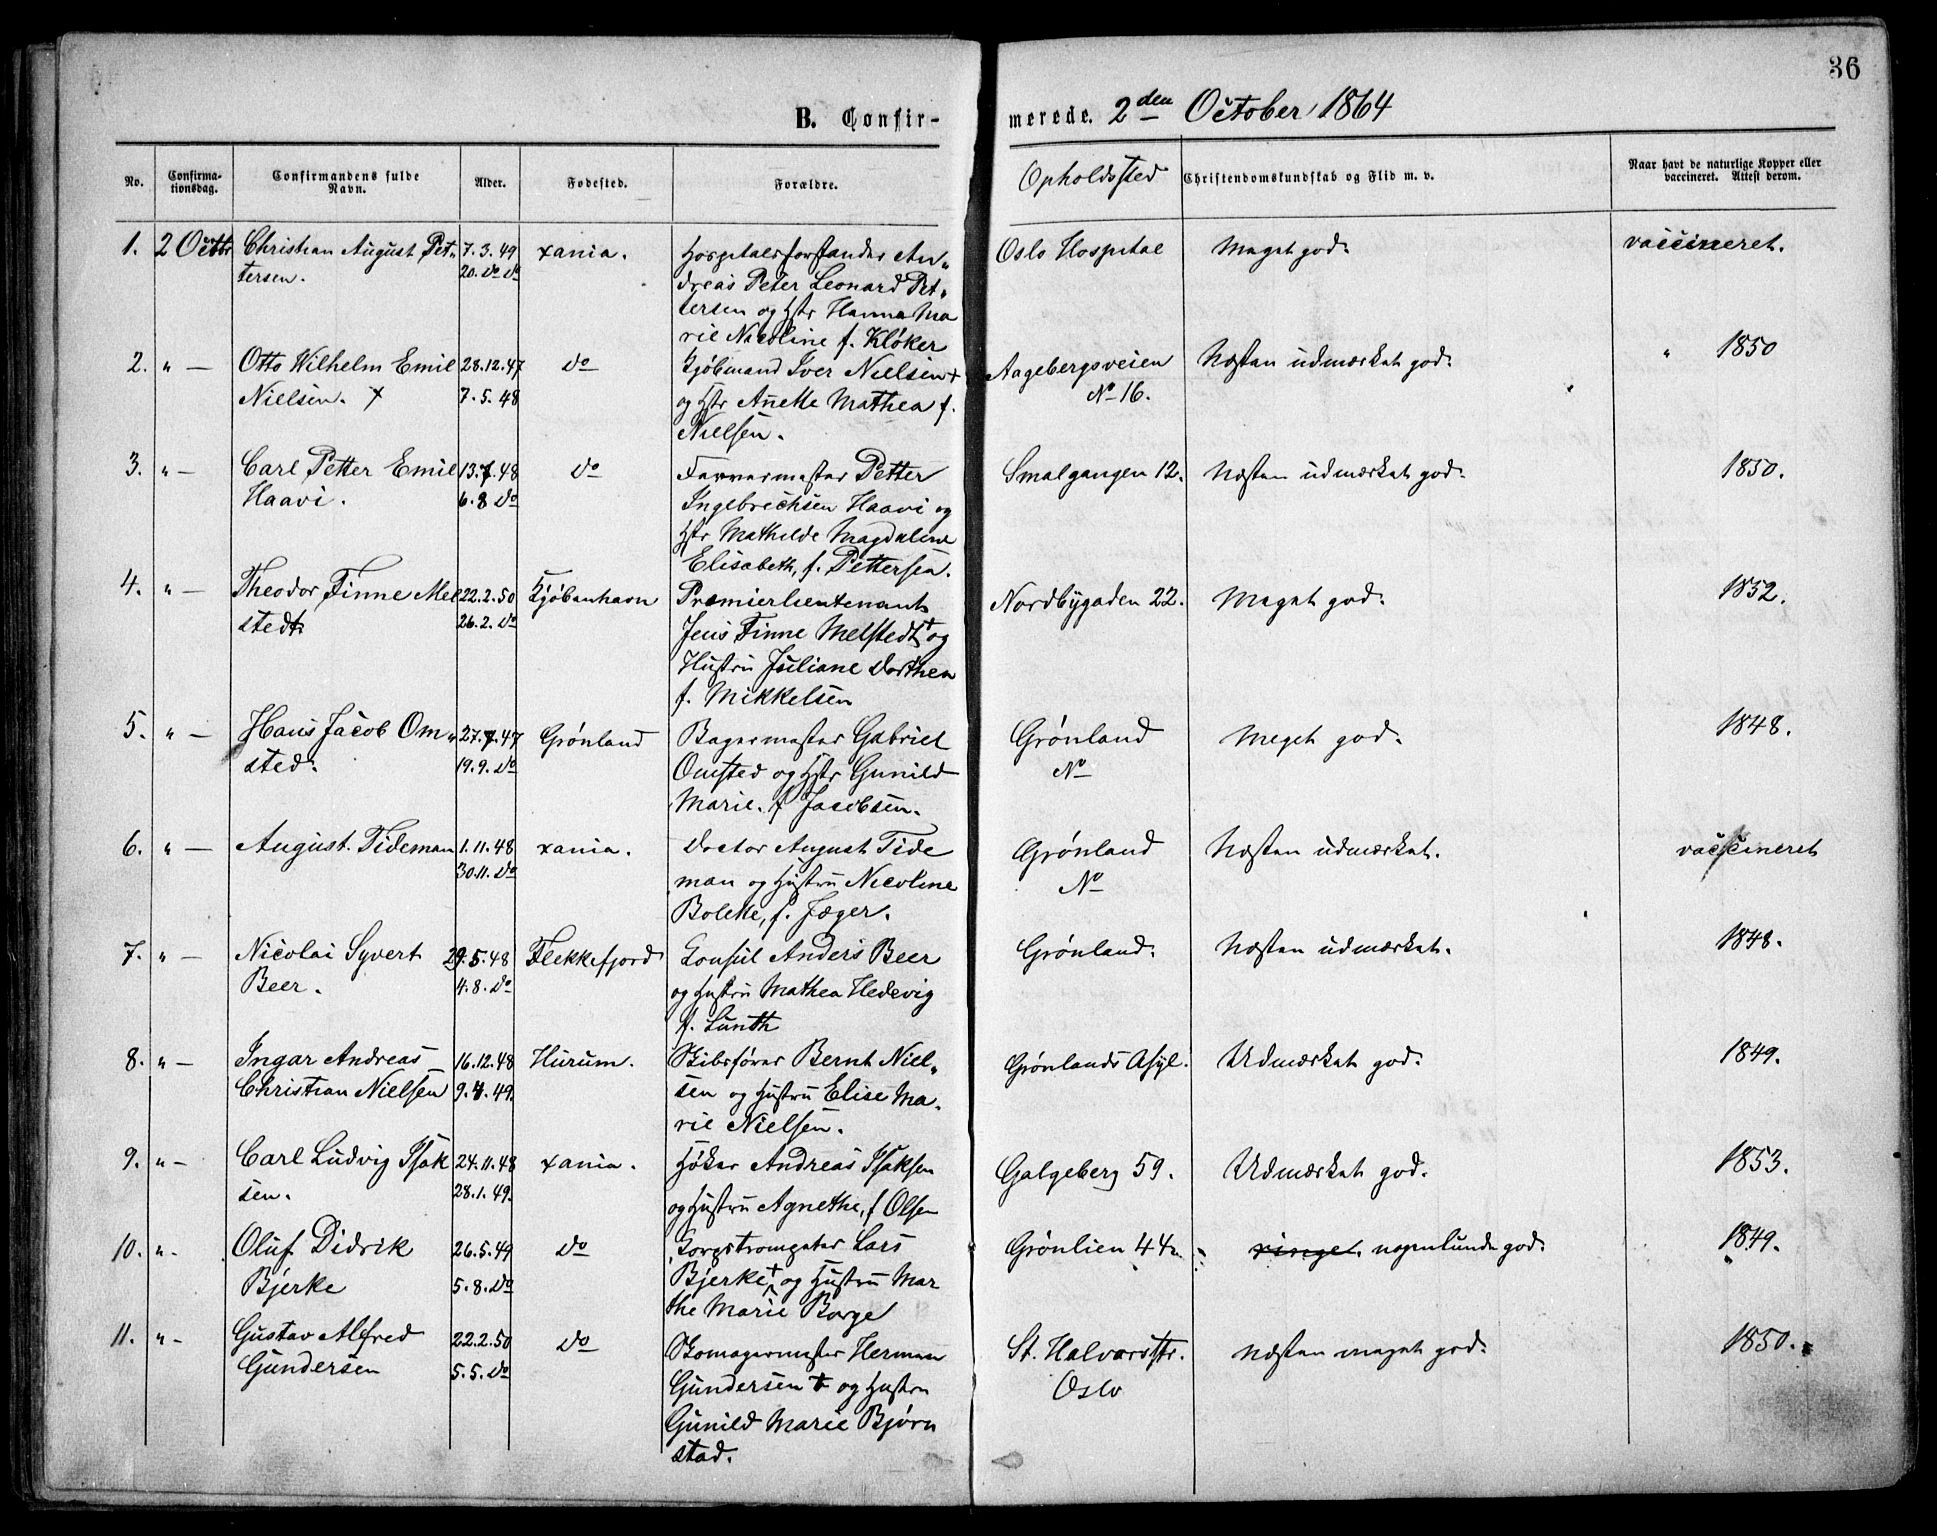 36
B. Confir-
merede. 2den October 1864
No.
Confirma-
tionsdag.
Confirmandens fulde
Navn.
Alder.
Fødested.
Forældre.
Opholdssted
Christendomskundskab og Flid m. v.
Naar havt de naturlige Kopper eller
vaccineret. Attest derom.
1. 2 Octbr Christian August Pet- 7.3.49 xania. Hospitalsforstander An- Oslo Hospital Meget god. vaccineret.
tersen. 20. do do dreas Peter Leonard Pet-
tersen og Hstr Hanna Ma
rie Nicoline f. Kløker
2. " — Otto Wilhelm Emil 28.12.47 do Kjøbmand Iver Nielsen + Aagebergsveien Næsten udmærket god. " 1850
Nielsen. + 7.5.48 og Hstr Anette Mathea f. No 16.
Nielsen.
3. " — Carl Petter Emil 13.7.48 do Farvermester Petter Smalgangen 12. Næsten udmærket god. 1850.
Haavi. 6.8 do Ingebrechsen Haavi og
Hstr Mathilde Magdaline
Elisabeth, f. Pettersen.
4. " — Theodor Finne Mel 22.2.50 Kjøbenhavn Premierlieutenant Nordbygaden 22. Meget god. 1852.
stedt 26.2. do Jens Finne Melstedt + og
Hustru Juliane Dorthea
f. Mikkelsen
5. " — Hans Jacob Om- 27.7.47 Grønland Bagermester Gabriel Grønland Meget god. 1848.
sted. 19.9. do Omsted og Hstr Gunild No
Marie. f Jacobsen.
6. " — August Tideman 1.11.48 xania. Doctor August Tide Grønland Næsten udmærket. vaccineret
30.11. do man og Hustru Nicoline No
Bolette, f. Jæger.
7. " — Nicolai Syvert 29.5.48 Flekkefjord Consul Anders Beer Grønland. Næsten udmærket. 1848.
Beer. 4.8. do og Hustru Mathea Hedevig
f. Lunth
8. " — Ingar Andreas 16.12.48 Hurum. Skibsfører Bernt Niel- Grønlands Asyl. Udmærket god. 1849.
Christian Nielsen 9.4.49. sen og Hustru Elise Ma-
rie Nielsen.
9. " — Carl Ludvig Isak 24.11.48 xania. Høker Andreas Isaksen Galgeberg 59. Udmærket god. 1853.
sen. 28.1.49. og Hustru Agnethe, f Olsen
10. " - Oluf Didrik 26.5.49 do Corpstrompeter Lars Grønlien 44 ringet. nogenlunde god. 1849.
Bjerke 5.8. do Bjerke + og Hustru Mar
the Marie Borge
11. " - Gustav Alfred 22.2.50 do Skomagermester Herman St. Halvardstr. Næsten meget god. 1850.
Gundersen 5.5. do Gundersen + og Hustru Oslo
Gunild Marie Bjørn
stad.